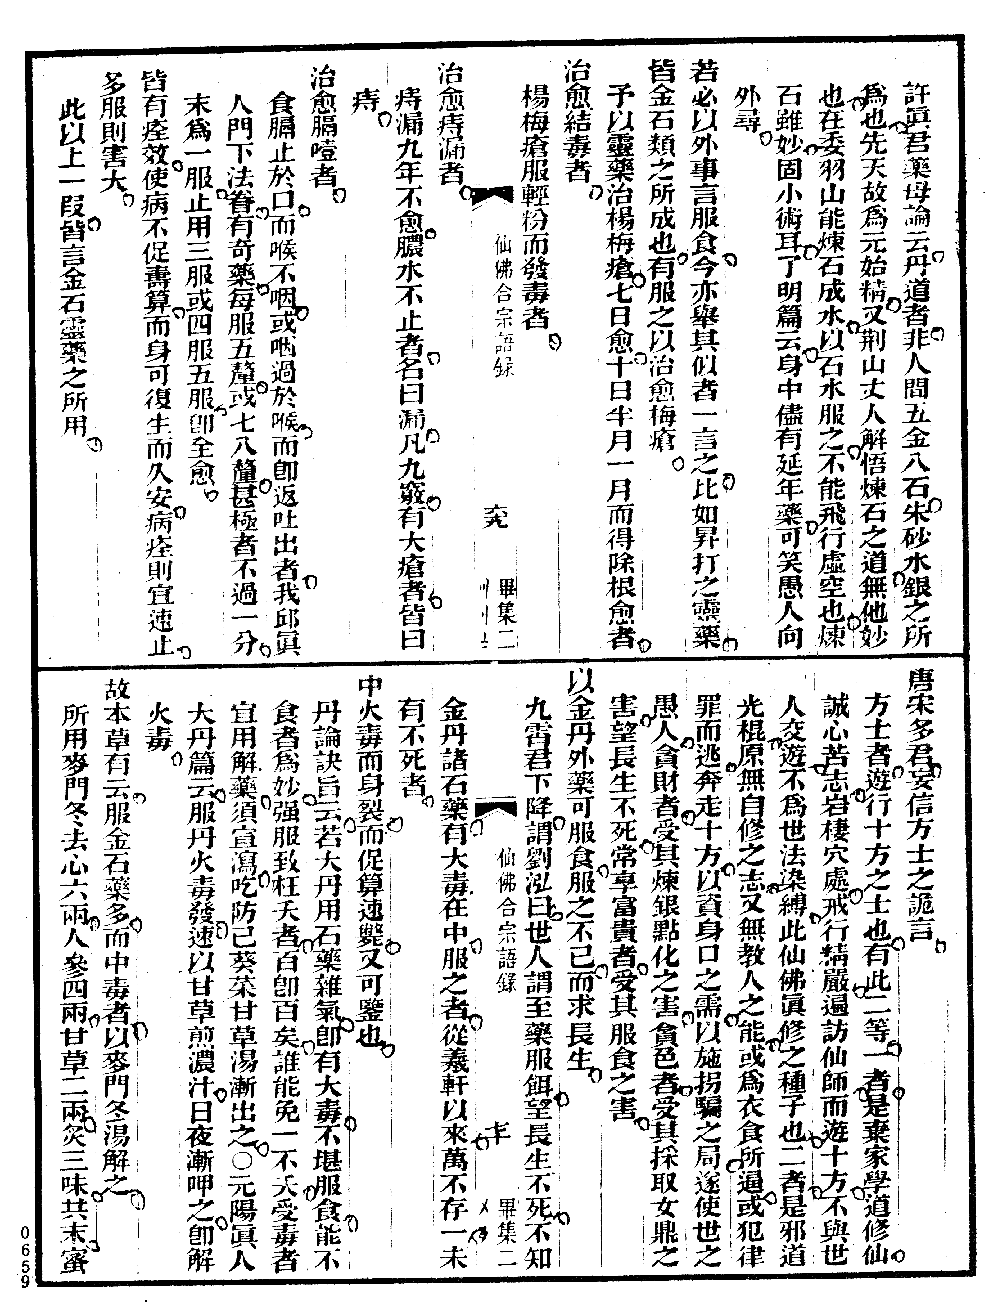 許眞君藥母論云丹道者非人間五金八石朱砂水銀之所
爲也先天故爲元始精又荆山丈人解悟煉石之道無他妙
也在委羽山能煉石成水以石水服之不能飛行虛空也煉
石雖妙固小術耳了明篇云身中儘有延年藥可笑愚人向
外尋
若必以外事言服食今亦舉其似者一言之比如昇打之靈藥
皆金石類之所成也有服之以治愈梅瘡
予以靈藥治楊梅瘡七日愈十日半月一月而得除根愈者
治愈結毒者
楊梅瘡服輕粉而發毒者
仙佛合宗語錄
畢集二
治愈痔漏者
痔漏九年不愈膿水不止者名曰漏凡九竅有大瘡者皆曰
痔
治愈膈噎者
食膈止於口而喉不咽或咽過於喉而卽返吐出者我邱眞
人門下法眷有奇藥每服五釐或七八釐甚極者不過一分
末爲一服止用三服或四服五服卽全愈
皆有痊效使病不促壽算而身可復生而久安病痊則宜速止
多服則害大
此以上一段皆言金石靈藥之所用
唐宋多君妄信方士之詭言
方士者遊行十方之士也有此二等一者是棄家學道修仙
誠心苦志岩棲穴處戒行精嚴遍訪仙師而遊十方不與世
人交遊不爲世法染縛此仙佛眞修之種子也二者是邪道
光棍原無自修之志又無教人之能或爲衣食所逼或犯律
罪而逃奔走十方以資身口之需以施拐騙之局遂使世之
愚人貪財者受其煉銀點化之害貪色者受其採取女鼎之
害望長生不死常享富貴者受其服食之害
以金丹外藥可服食服之不已而求長生
九霄君下降謂劉泓曰世人謂至藥服餌望長生不死不知
仙佛合宗語錄
畢集二
金丹諸石藥有大毒在中服之者從羲軒以來萬不存一未
有不死者
中火毒而身裂而促算速斃又可鑒也
丹論訣旨云若大丹用石藥雜氣卽有大毒不堪服食能不
食者爲妙强服致枉夭者百卽百矣誰能免一不夭受毒者
宜用解藥須宣瀉吃防己葵菜甘草湯漸出之〇元陽眞人
大丹篇云服丹火毒發速以甘草煎濃汁日夜漸呷之卽解
火毒
故本草有云服金石藥多而中毒者以麥門冬湯解之
所用麥門冬去心六兩人參四兩甘草二兩炙三味共末蜜
0659